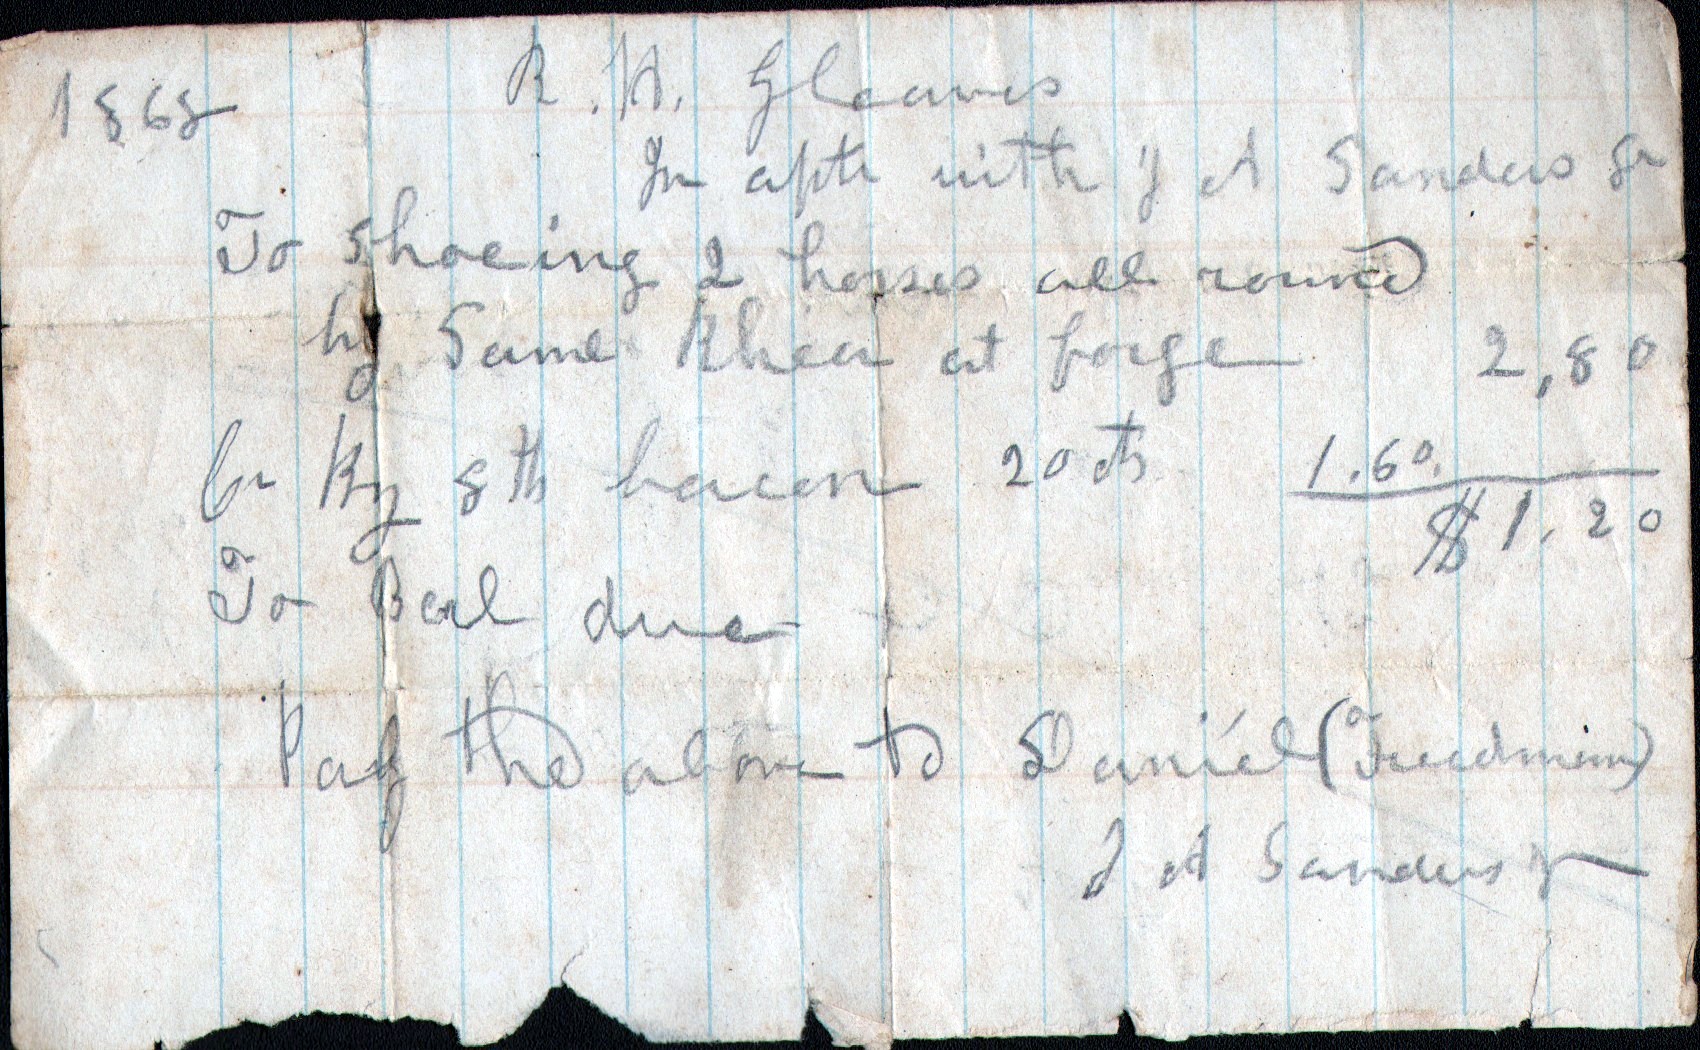 1868 R. H. Gleaves
In a/ct with J A Sanders Sr
To Shoeing 2 horses all round
by Same Rhea at forge 2,80
Cr By 8 lb bacon 20 cts 1.60.
$1.20
To Bal due
Pay the above to Daniel (Freedman)
J A Sanders Sr